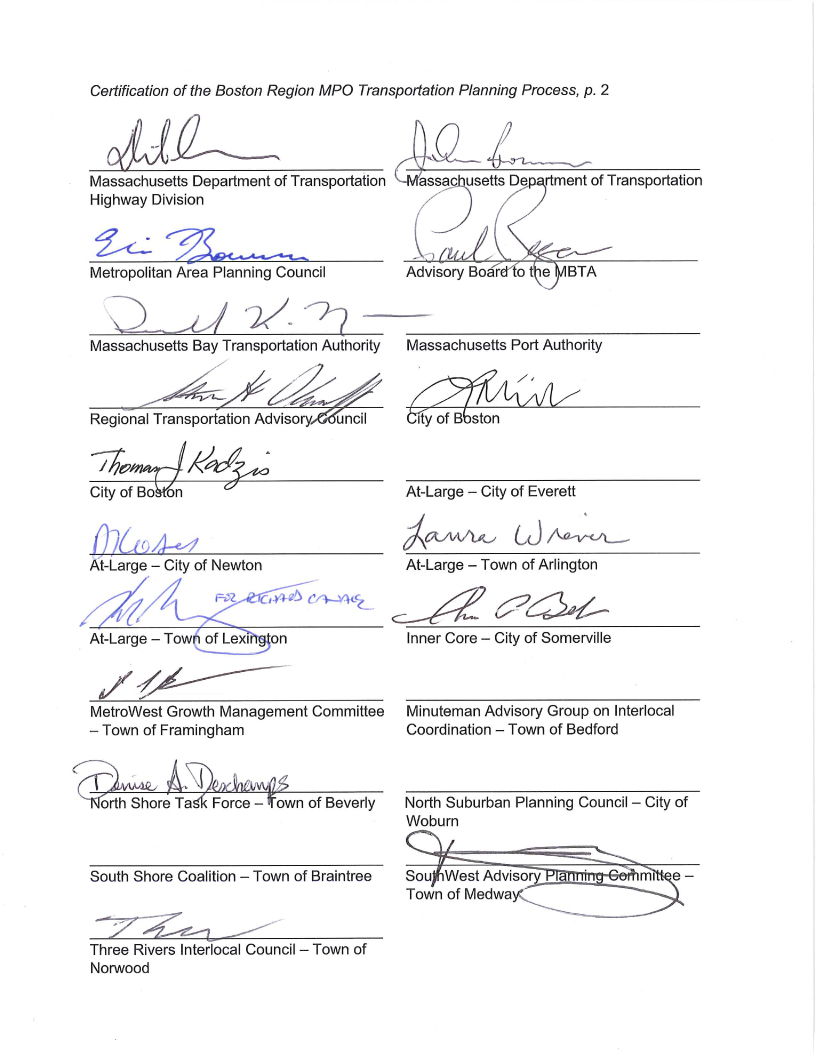 Certification of the Boston Region MPO Transportation Planning Process, p. 2
Massachusetts Department of Transportation
Highway Division
Massachusetts Department of Transportation
Metropolitan Area Planning Council
Paul
Advisory Board to the MBTA
Massachusetts Bay Transportation Authority
Massachusetts Port Authority
Regional Transportation Advisory Council
City of Boston
Thomas J Kadzis
City of Boston
At-Large – City of Everett
At-Large – City of Newton
Laura Wiener
At-Large – Town of Arlington
FOR RICHARD CANALE
At-Large – Town of Lexington
Inner Core – City of Somerville
MetroWest Growth Management Committee
– Town of Framingham
Minuteman Advisory Group on Interlocal
Coordination – Town of Bedford
Denise A. Deschamps
North Shore Task Force – Town of Beverly
North Suburban Planning Council – City of
Woburn
South Shore Coalition – Town of Braintree
SouthWest Advisory Planning Committee –
Town of Medway
Three Rivers Interlocal Council – Town of
Norwood